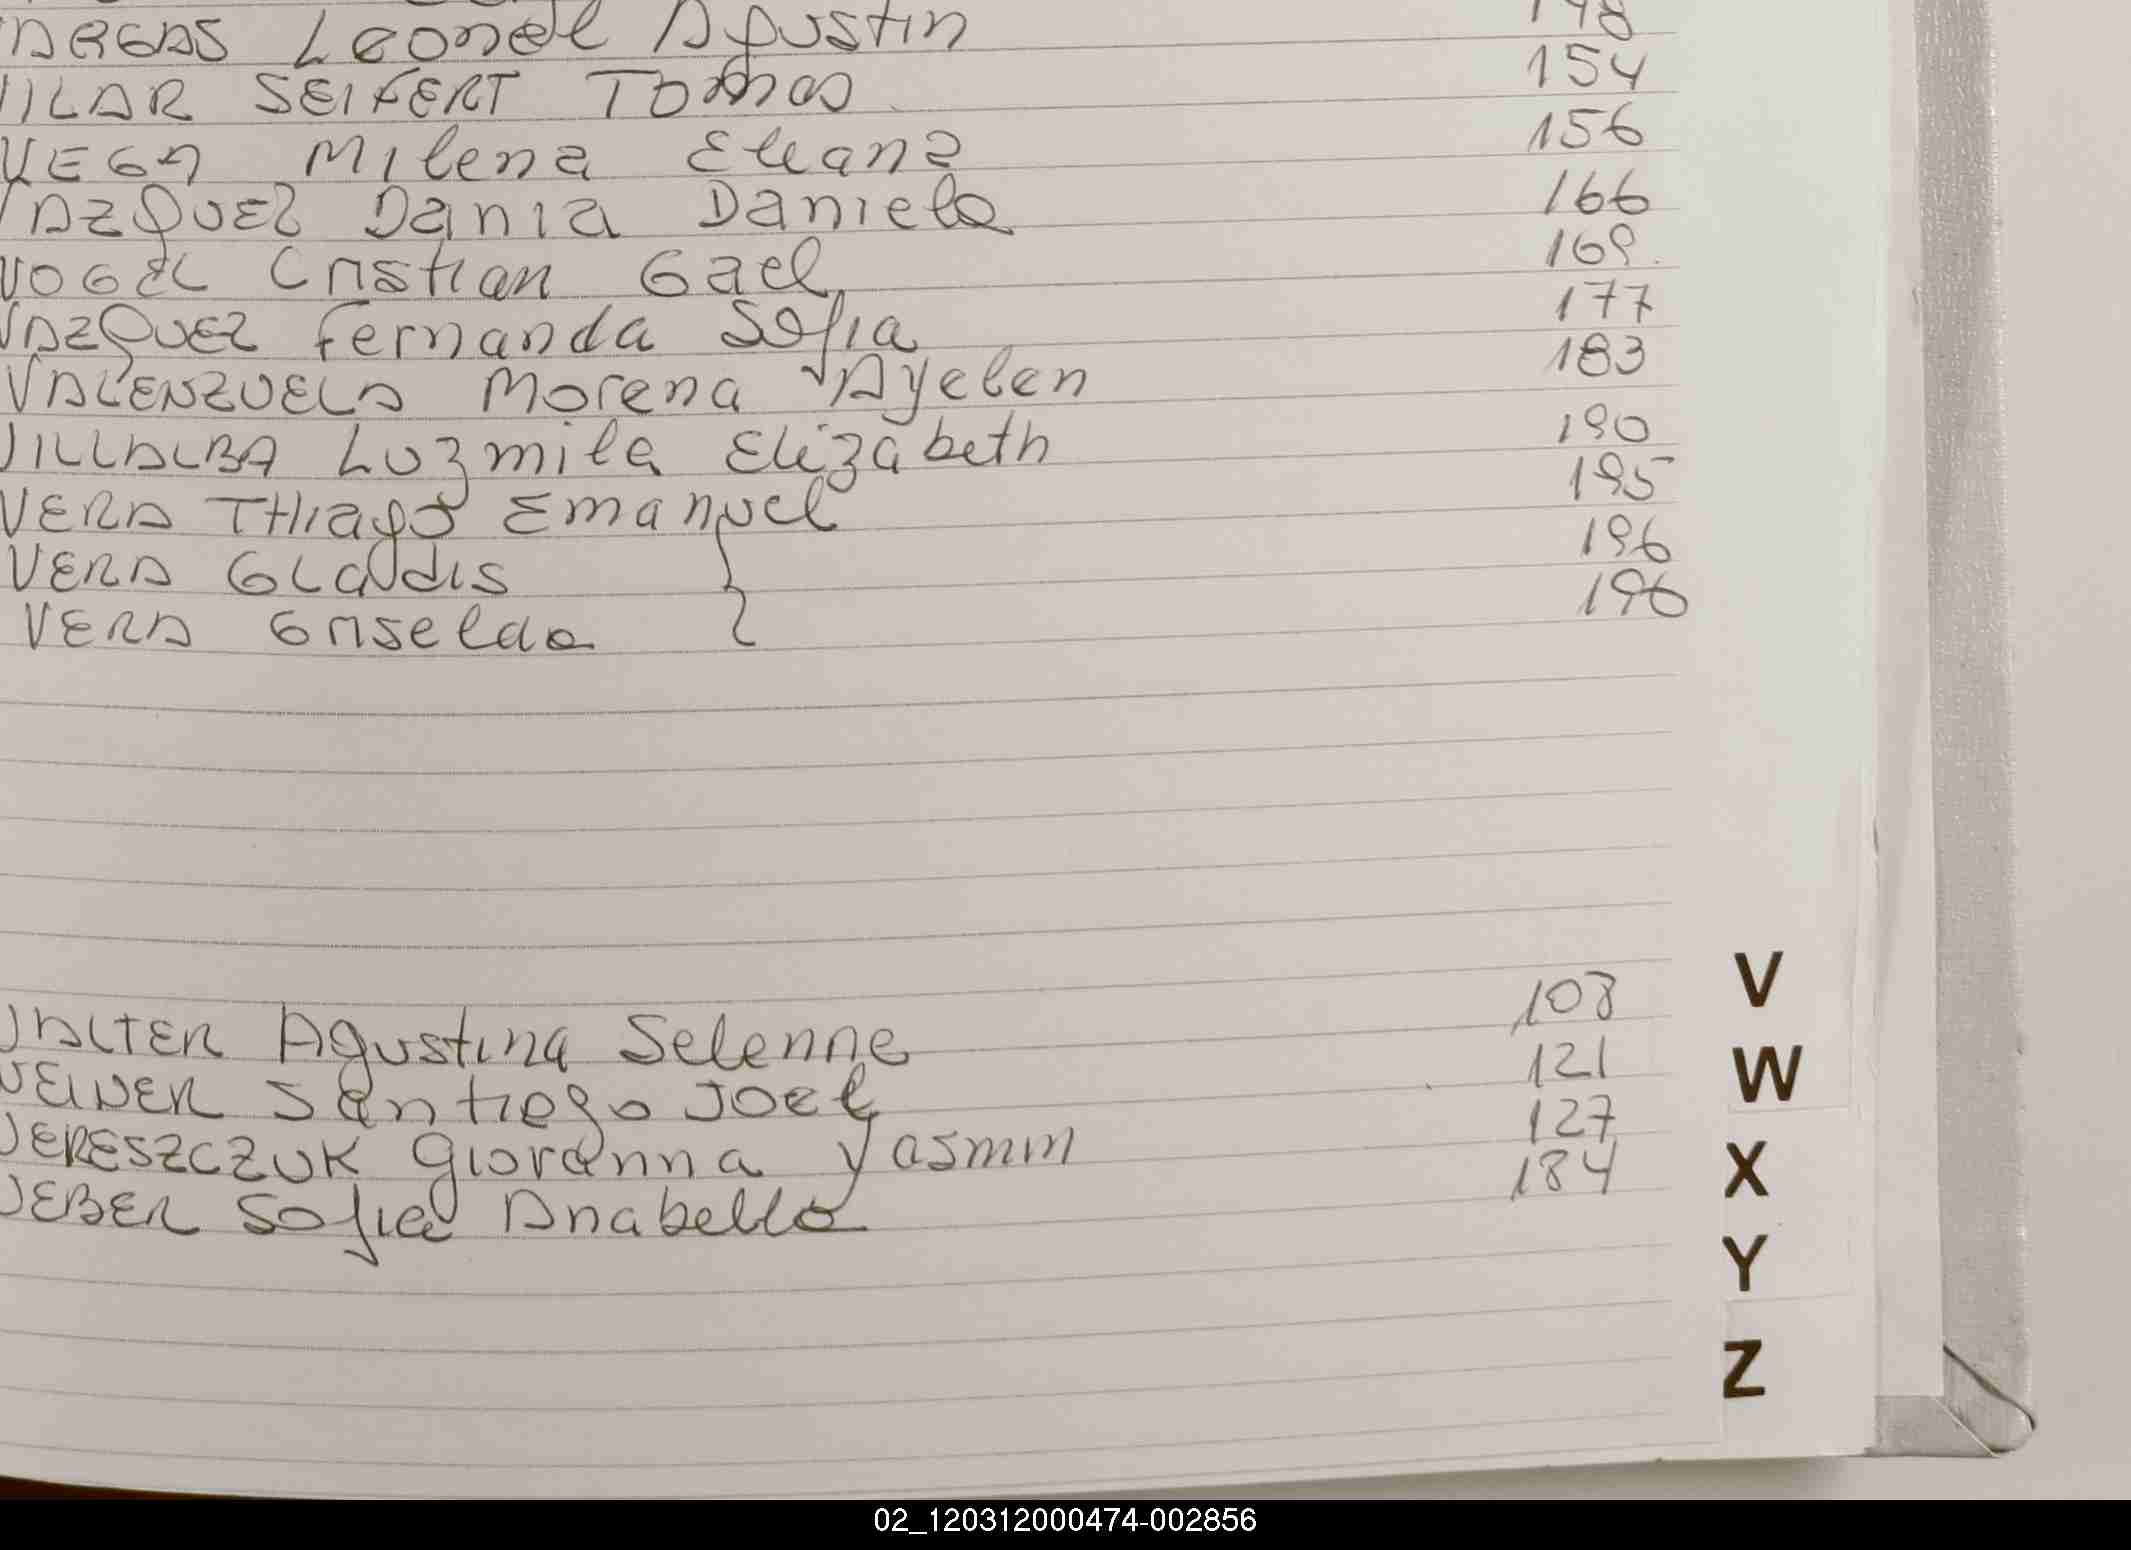 VARGAS Leonel Agustin 148
VILAR SEIFERT Tomas 154
VEGA Milena Eliana 156
VAZQUEZ Dania Daniela 166
VOGEL Cristian Gael 169
VAZQUEZ Fernanda Sofia 177
VALENZUELA Morena Ayelen 183
VILLALBA Luzmila Elizabeth 190
VERA Thiago Emanuel 195
VERA Glaudis } 196
VERA Griselda 196
WALTER Agustina Selenne 108
WEINER Santiago Joel 121
WERESZCZUK Giovanna Yasmin 127
WEBER Sofia Anabella 184
V
W
X
Y
Z
02_120312000474-002856